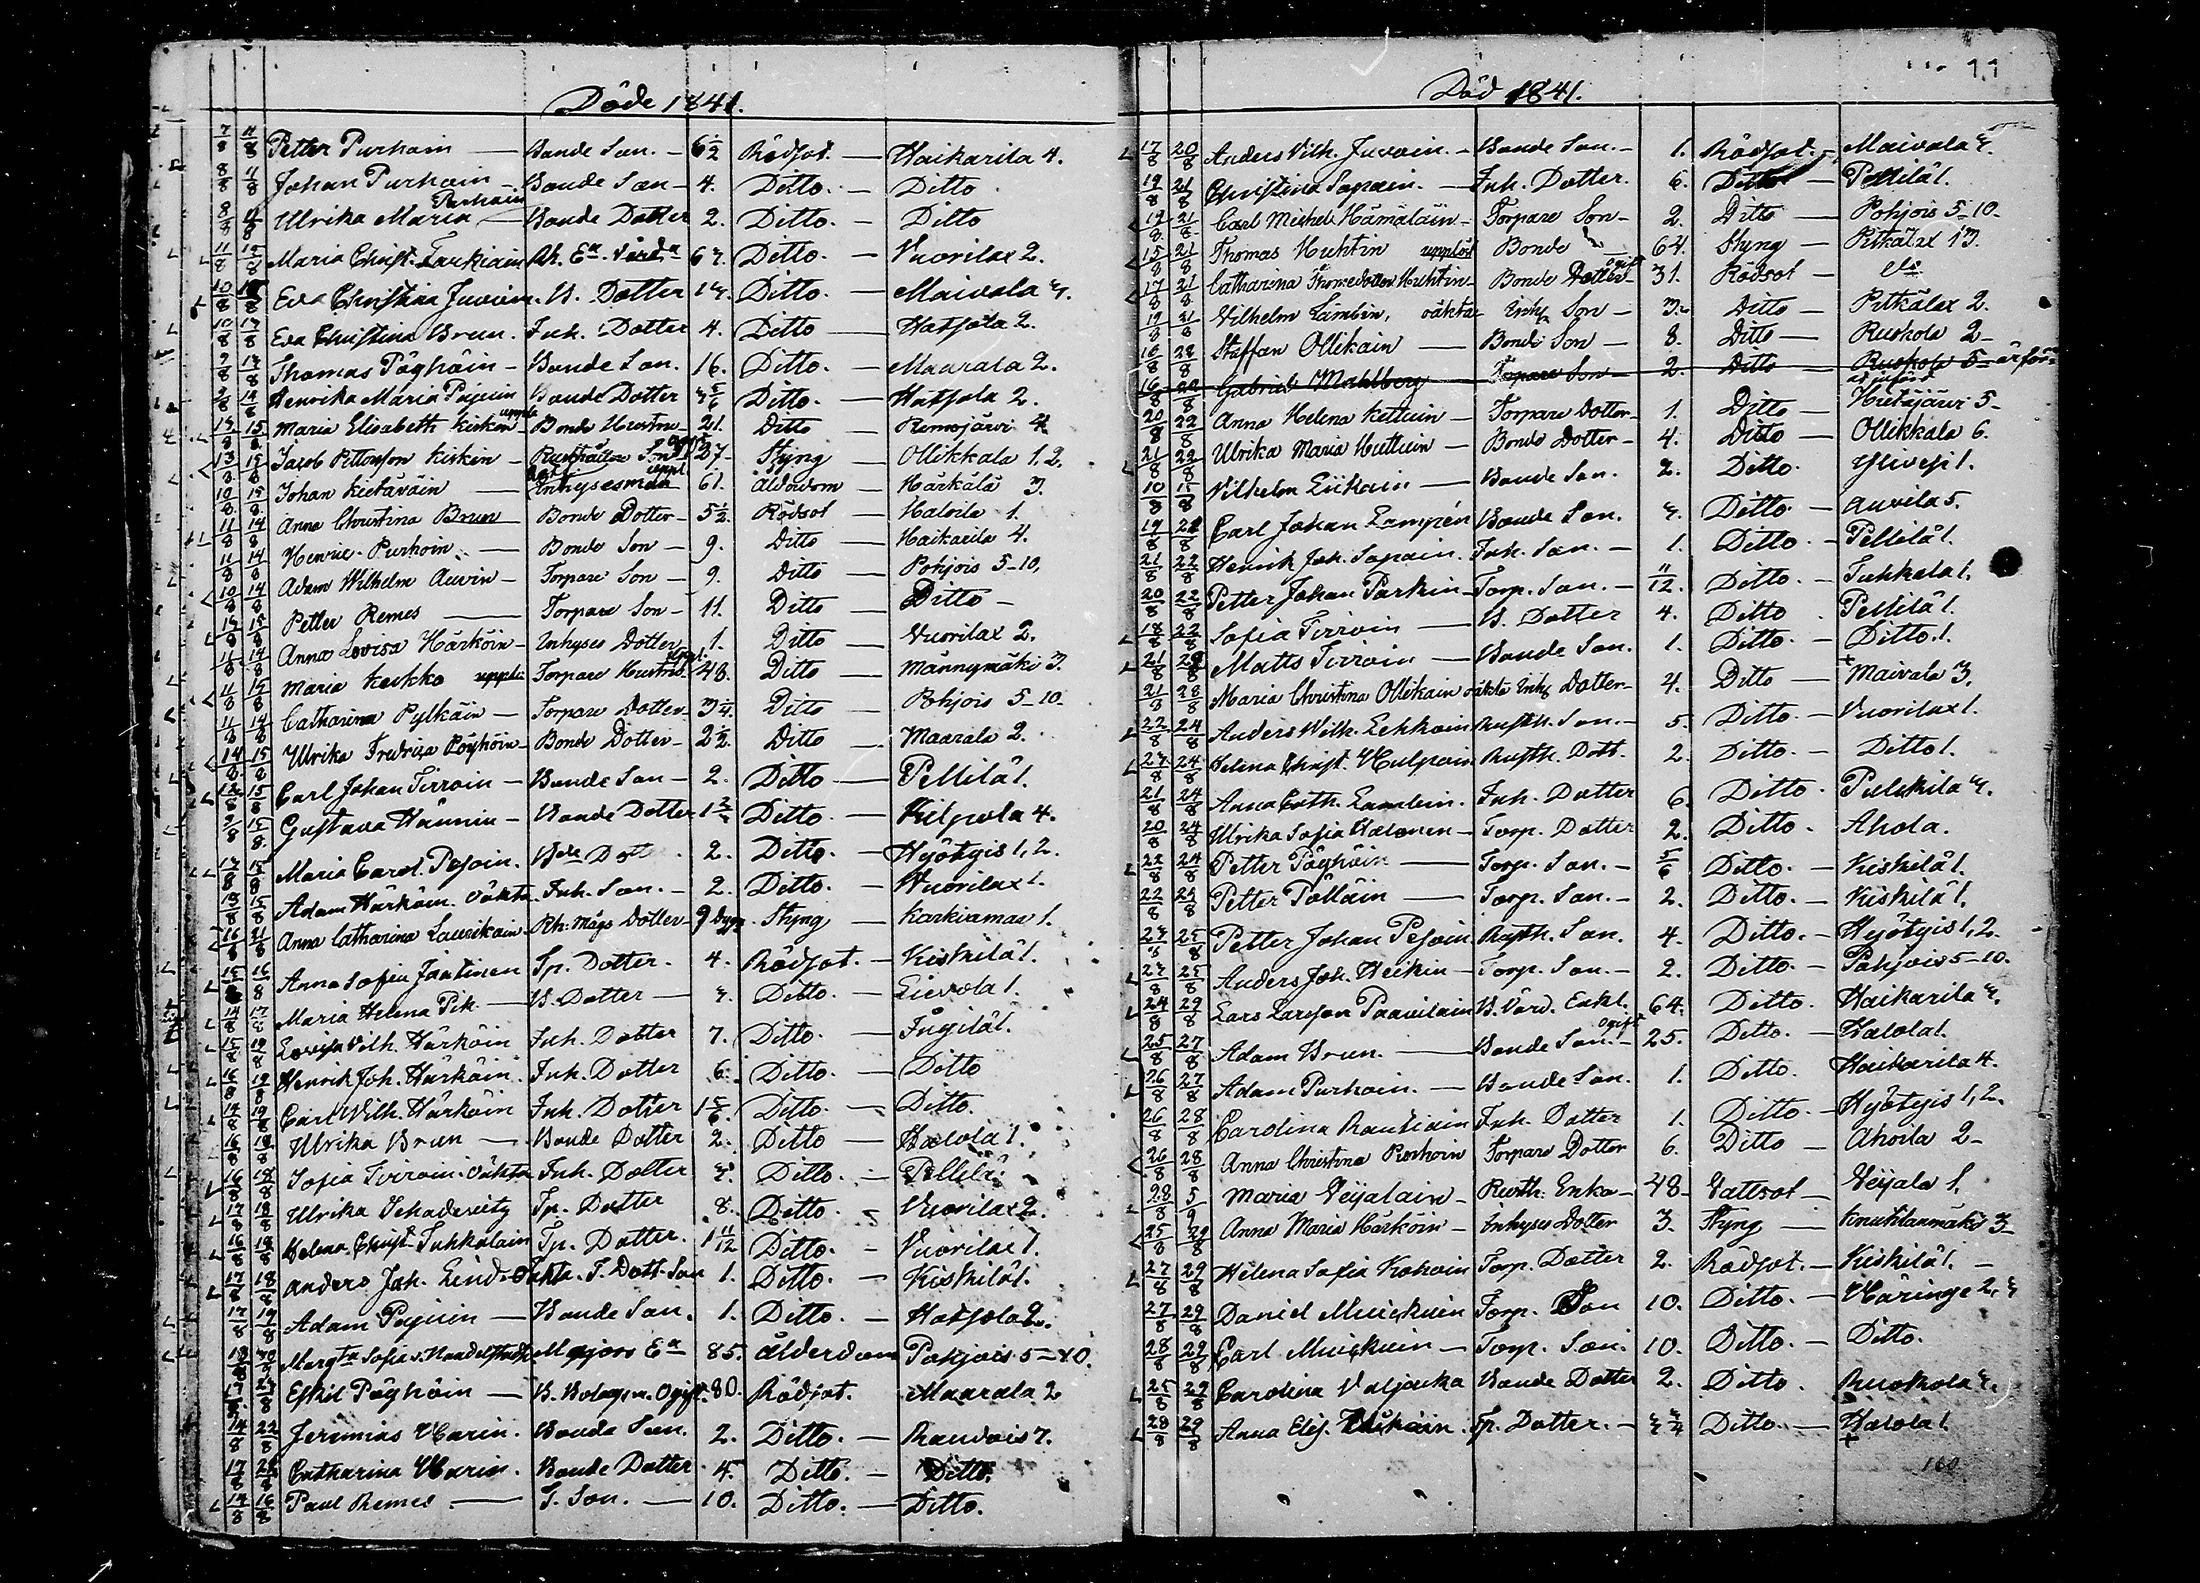 Döde 1841.
7/8 11/8 Petter Purhoin — Bonde Son. — 6 1/2 Rödsot. — Haikarila 4.
8/8 11/8 Johan Purhoin — Bonde Son — 4. Ditto. — Ditto
Purhoin
8/8 11/8 Ulrika Maria — Bonde Dotter 2. Ditto. — Ditto
11/8 15/8 Maria Christ. Taukiain Rh. Ea. Värda 67. Ditto. — Vuorilax 2.
10/8 Eva Christina Juvoin. B. Dotter 14. Ditto. — Maivala 4.
10/8 17/8 Eva Christina Brun. Inh. Dotter 4. Ditto — Hatsola 2.
9/8 17/8 Thomas Pöyhöin — Bonde Son. 16. Ditto. — Maarala 2.
9/8 14/8 Henrika Maria Pajuin Bonde Dotter Ditto. — Hatsola 2.
15/8 Maria Elisabeth Kiskin Bonde Hustru 21. Ditto — Remojärvi 4.
13/8 15/8 Jacob Pettersson Kiskin — Rusthålla Son 27 — Styng — Ollikkala 1.2.
10/8 15/8 Johan Kietäväin — Inhysesman 61. Ålderdom — Härkälä 3.
11/8 14/8 Anna Christina Brun Bonde Dotter — 5 1/2. Rödsot — Halola 1.
11/8 14/8 Henric Purhoin. — Bonde Son — 9. Ditto — Haikarila 4.
10/8 14/8 Adam Wilhelm Auvin — Torpare Son — 9. Ditto — Pohjois 5-10.
15/8 Petter Remes — Torpare Son — 11. Ditto — Ditto —
11/8 14/8 Anna Lovisa Härköin — Inhyses Dotter 1. Ditto — Vuorilax 2.
11/8 15/8 Maria Kaskko Torpare Hustru 48. Ditto — Männymäki 3.
11/8 14/8 Catharina Pylkäin — Torpare Dotter — 3 1/4. Ditto — Pohjois 5-10-
14/8 15/8 Ulrika Fredrica Pöyhöin — Bonde Dotter — 2 1/2. Ditto — Maarala 2.
12/8 15/8 Carl Johan Tirroin — Bonde Son — 2. Ditto — Pellilä 1.
9/8 15/8 Gustava Hännin — Bonde Dotter Ditto. — Kilpola 4.
15/8 Maria Carol. Pesoin. Bde Dott 2. Ditto. — Hyötyis 1, 2.
15/8 Adam Härköin. Oäkta Inh. Son. — 2. Ditto. — Vuorilax 1.
16/8 21/8 Anna Catharina Laurikain — Rh: Mågs Dotter — 9 dygn Styng — Karkiamaa 1.
15/8 16/8 Anna Sofia Jäntinen Tp. Dotter. — 4. Rödsot. — Kiskilä 1.
14/8 17/8 Maria Helena Pik. — B. Dotter — Ditto. — Lievola 1.
15/8 19/8 Lovisa Vilh. Härköin Inh. Dotter 7. Ditto. — Ingilä 1.
16/8 19/8 Henrik Joh. Härköin. Inh. Dotter 6. Ditto. — Ditto
19/8 Carl Wilh. Härköin Inh. Dotter 1 5/6. Ditto. — Ditto.
16/8 19/8 Ulrika Brun — Bonde Dotter 2. Ditto — Halola 1.
16/8 18/8 Sofia Tirroin. Oäkta Inh. Dotter Ditto. — Pellilä
17/8 18/8 Ulrika Schadevitz Tp. Dotter 8. Ditto. — Vuorilax 2.
16/8 18/8 Helena Christ. Tuhkalain Tp. Dotter. 1 11/12 Ditto. — Vuorilax 1.
17/8 18/8 Anders Joh. Lind. Oäkta. T. Dott. Son 1. Ditto. — Kiskilä 1.
17/8 19/8 Adam Pajuin — Bonde Son. 1. Ditto. — Hatsola 2.
18/8 Margta Sofia v. Majors Ea 85. ålderdom Pohjois 5-10.
Eskil Pöyhöin — B. Bolagsm. Ogift. 80. Rödsot. — Maarala 2
14/8 22/8 Jeremias Harin. Bonde Son. 2. Ditto. — Raudois 7.
17/8 Catharina Harin. Bonde Dotter. 4. Ditto. — Ditto.
14/8 16/8 Paul Remes — T. Son. — 10. Ditto. — Ditto.
11
Död 1841.
17/8 20/8 Anders Vilh. Juvoin. — Bonde Son. — 1. Rödsot. — Maivala 4.
19/8 21/8 Christina Sapain. — Inh. Dotter. 6. Ditto — Pellilä 1.
19/8 21/8 Carl Michel Hämäläin — Torpare Son — 2. Ditto — Pohjois 5-10-
15/8 21/8 Thomas Huhtin Bonde — 64. Styng — Pitkälax 13.
ogift
17/8 21/8 Catharina Thomedotter Huhtin — Bonde Dotter 31. Rödsot —
19/8 21/8 Vilhelm Lambin, oäkta Inhy. Son — 3. Ditto — Pitkälax 2.
18/8 28/8 Staffan Ollikain — Bonde Son — 8. Ditto — Ruokola 2 —
16/8 20/8 Gabriel Mahlberg Torpare Son 2. Ditto Ruokola 5
20/8 22/8 Anna Helena Kettuin — Torpare Dotter — 1. Ditto — Hietajärvi 5 —
21/8 22/8 Ulrika Maria Huttuin — Bonde Dotter — 4. Ditto — Ollikkala 6.
10/8 15/8 Vilhelm Liikain — Bonde Son. 2. Ditto. Ylivesi 1.
19/8 22/8 Carl Johan Lampén Bonde Son. Ditto. — Auvila 5.
21/8 22/8 Henrik Joh. Sapain. Inh. Son. — 1. Ditto. — Pellilä 1.
20/8 22/8 Petter Johan Parkin — Torp. Son. — 11/12. Ditto. — Tuhkala 1.
18/8 22/8 Sofia Tirroin — B. Dotter 4. Ditto. Pellilä 1.
21/8 Matts Tirroin — Bonde Son. 1. Ditto. — Ditto. 1.
21/8 28/8 Maria Christina Ollikain oäkta Inhy Dotter — 4. Ditto — Maivala 3.
22/8 24/8 Anders Wilh. Lehkoin Rusth. Son. — 5. Ditto. — Vuorilax 1.
24/8 Helena Christ. Hulpoin Rusth. Dott. 2. Ditto. — Ditto 1.
21/8 24/8 Anna Cath. Lambin. Inh. Dotter 6. Ditto. Pulskila 4.
20/8 24/8 Ulrika Sofia Halonen — Torp. Dotter 2. Ditto. — Ahola.
22/8 24/8 Petter Pöyhöin — Torp. Son. — 5/6 Ditto. — Kiskilä 1.
22/8 25/8 Petter Pölläin — Torp. Son. — 2. Ditto. — Kiskilä 1.
25/8 Petter Johan Pesoin. Rusth. Son. 4. Ditto. — Hyötyis 1, 2.
25/8 Anders Joh. Heikin — Torp. Son. — 2. Ditto. — Pohjois 5-10.
24/8 29/8 Lars Larsson Paavilain B. Värd. Enkl. 64. Ditto. Haikarila 4.
ogift
25/8 27/8 Adam Brun. — Bonde Son. — 25. Ditto. — Halola 1.
26/8 27/8 Adam Purhoin. — Bonde Son. 1. Ditto. Haikarila 4.
26/8 28/8 Carolina Rautiain Inh. Dotter 1. Ditto. — Hyötyis 1, 2.
26/8 28/8 Anna Christina Torpare Dotter 6. Ditto — Ahoila 2 —
28/8 5/9 Maria Veijalain — Rusth. Enka — 48 — Vattsot — Veijala 1.
25/8 29/8 Anna Maria Härköin — Inhyses Dotter 3. Styng — Knuutilanmäki 3 —
27/8 29/8 Helena Sofia Kokoin Torp. Dotter 2. Rödsot. — Kiskilä 1. —
27/8 29/8 Daniel Muickuin Torp. Son 10. Ditto. — Häringe 2.
28/8 29/8 Carl Muickuin — Torp. Son. 10. Ditto. — Ditto.
25/8 29/8 Carolina Valjacka Bonde Dotter 2. Ditto. Ruokola 4.
28/8 29/8 Anna Elis. Tp. Dotter. — Ditto. — Halola 1.
100